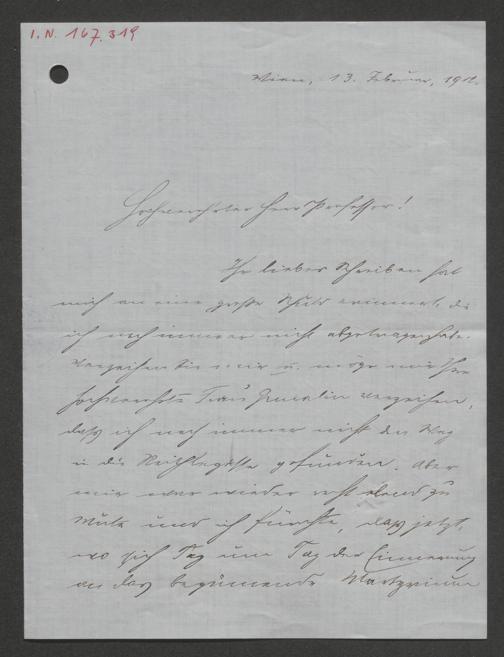 I.N. 167.319
Wien, 13. Februar, 1912.
Hochverehrter Herr Professor!
Ihr liebes Schreiben hat
mich an eine große Schuld erinnert, die
ich noch immer nicht abgetragen habe.
Verzeihen Sie mir u. möge mir Ihre
hochverehrte Frau Gemahlin verzeihen,
daß ich noch immer nicht den Weg
in die gefunden. Aber
mir war wieder recht elend zu
Mute und ich fürchte, daß jetzt,
wo sich Tag um Tag der Erinnerung
an das beginnende Martyrium